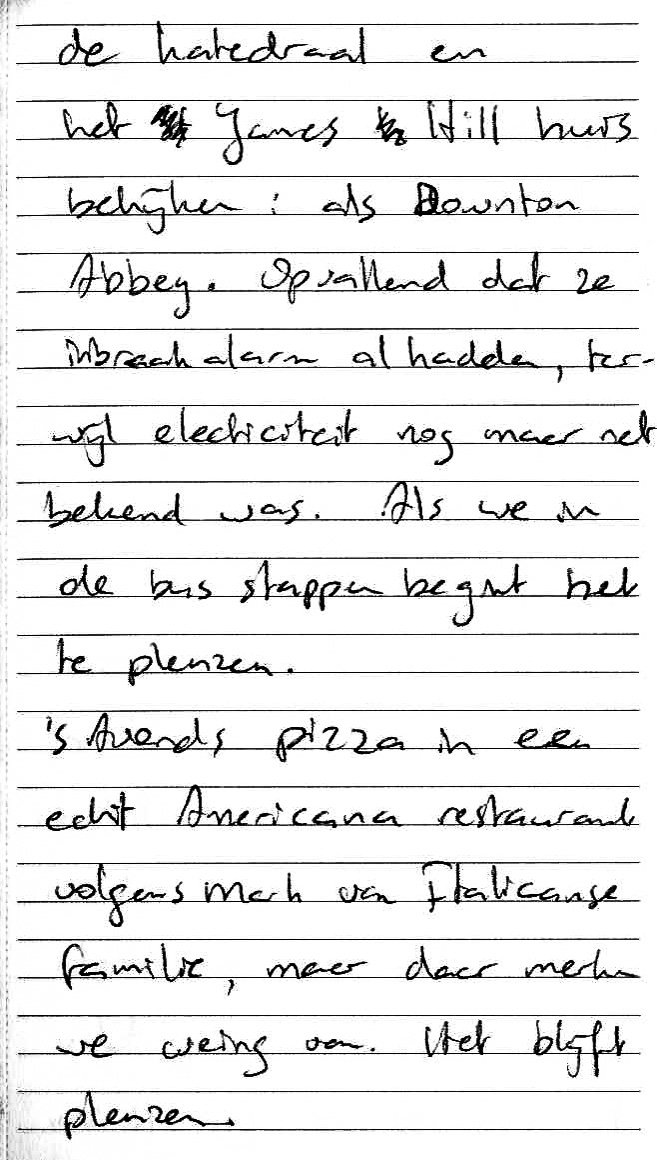 de katedraal en
het James Hill huis
bekijken : als Downton
Abbey. Opvallend dat ze
inbraakalarm al hadden, ter-
wijl electiciteit nog maar net
bekend was. Als we in
de bus stappen begint het
te plenzen.
's Avonds pizza in een
echt Americana restaurant
volgens Mark van Italicaanse
familie, maar daar merken
we weinig van. Het blijft
plenzen.